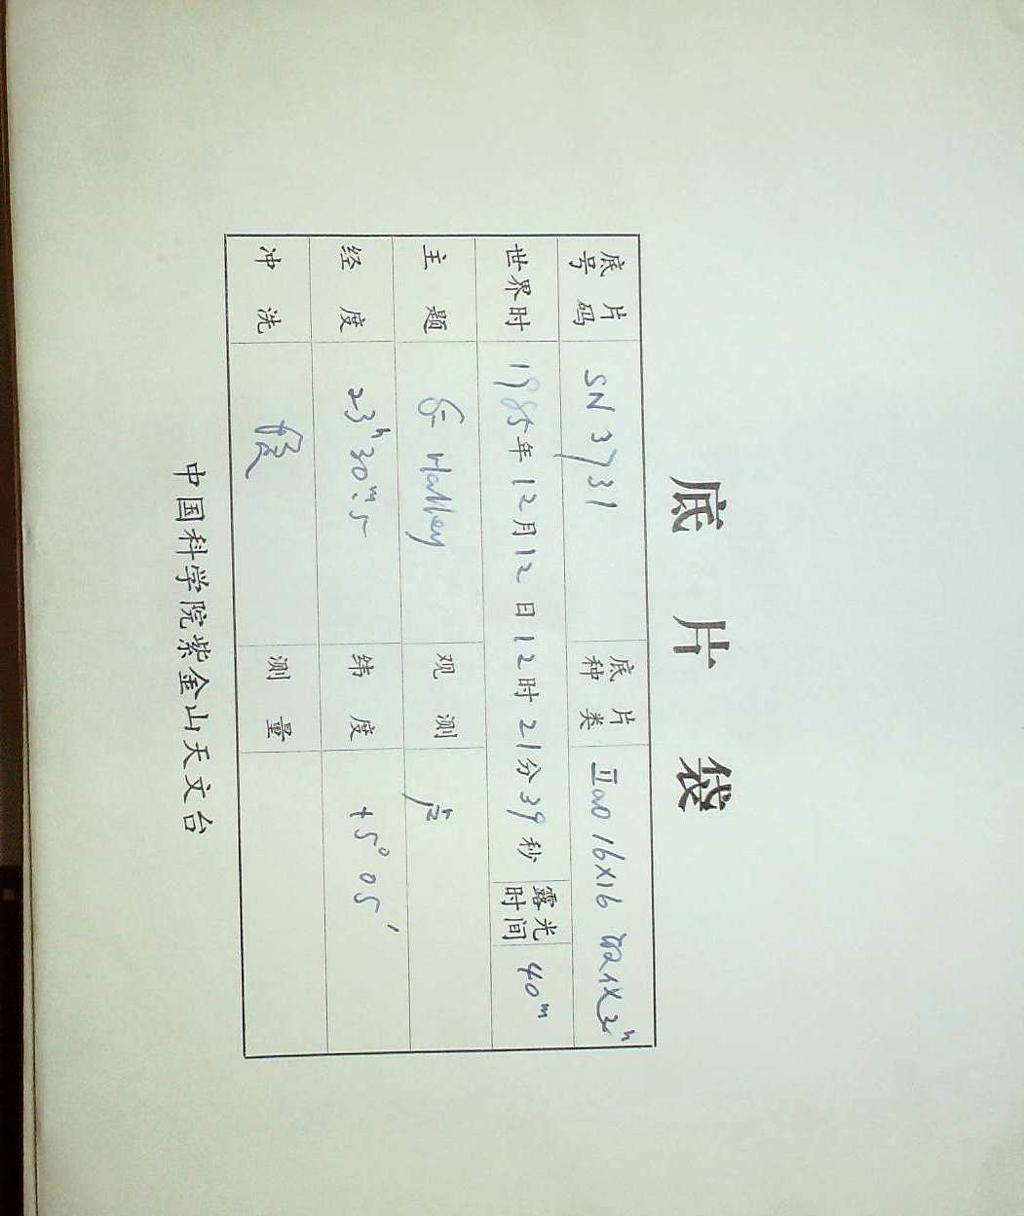 底片袋
底片号码 SN 3731 底片种类 IIaO 16×16
世界时 1985年12月12日12时21分39秒 露光时间 40m
主题 Halley 观测
经度 23h 30m.5 纬度 +5° 05′
冲洗 测量
中国科学院紫金山天文台